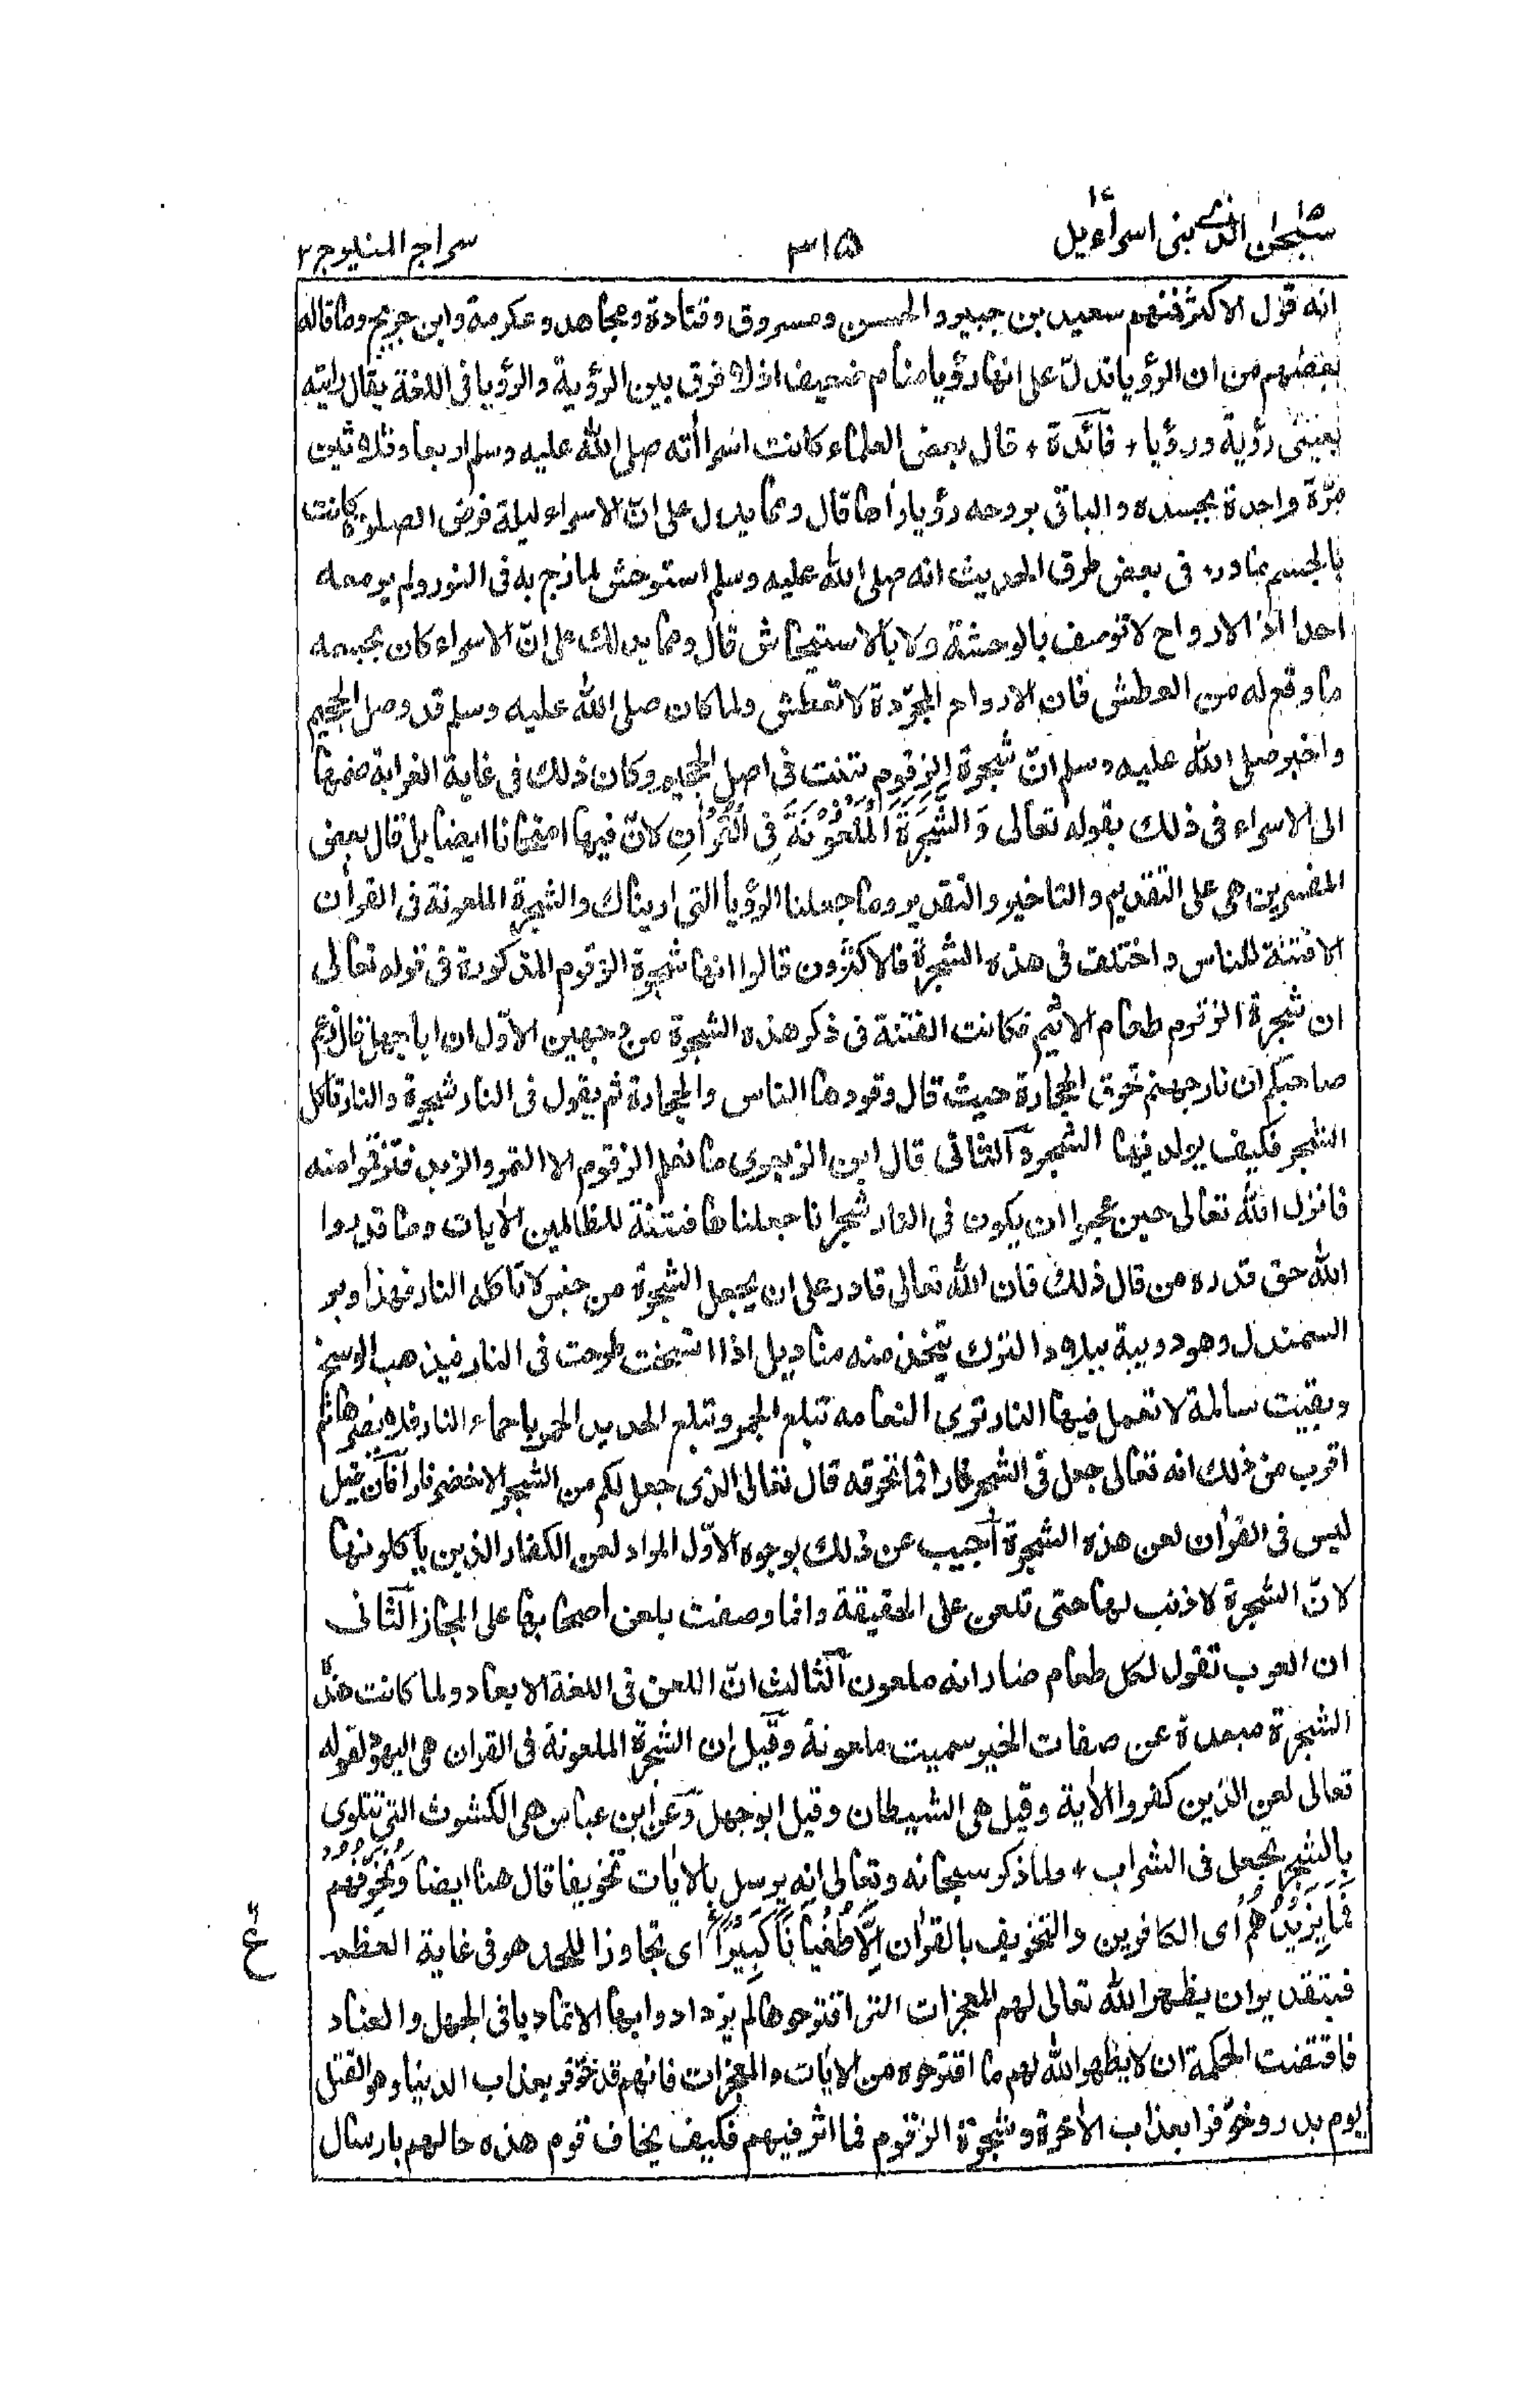 سبحن الذى ١٥ بنى اسرآءيل ١٤
٣١٥
سراج المنير ج ٢
انه قول الاكثر فمنهم سعيد بن جبير والحسن ومسروق وقتادة ومجاهد وعكرمة وابن جريج وما قاله
بعضهم من ان الرؤيا تدل على انها رؤيا منام ضعيف اذ لا فرق بين الرؤية والرؤيا فى اللغة يقال رايته
بعينى رؤية ورؤيا + فآئدة + قال بعض العلماء كانت اسراأته صلى الله عليه وسلم اربعا وثلاثين
مرّة واحدة بجسده والباقى بروحه رؤيا رأها قال ومما يدل على انّ الاسراء ليلة فرض الصلوة كانت
بالجسم ما ورد فى بعض طرق الحديث انه صلى الله عليه وسلم استوحش لما زج به فى النور ولم ير معه
احدا اذ الارواح لا توصف بالوحشة ولا بالاستيحاش قال ومما يدلك على انّ الاسراء كان بجسمه
ما وقع له من العطش فان الارواح المجرّدة لا تعطش ولما كان صلى الله عليه وسلم قد وصل الجحيم
واخبر صلى الله عليه وسلم انّ شجرة الزقوم تنبت فى اصل الجحيم وكان ذلك فى غاية الغرابة ضمها
الى الاسراء فى ذلك بقوله تعالى وَالشَّجَرَةَ الْمَلْعُوْنَةَ فِى الْقُرْاٰنِ لانّ فيها امتحانا ايضا بل قال بعض
المفسرين هى على التقديم والتاخير والتقدير وما جعلنا الرؤيا التى اريناك والشجرة الملعونة فى القرأن
الا فتنة للناس واختلف فى هذه الشجرة فالاكثرون قالوا انها شجرة الزقوم المذكورة فى قوله تعالى
ان شجرة الزقوم طعام الاثيم فكانت الفتنة فى ذكر هذه الشجرة من وجهين الاوّل ان اباجهل قال زعم
صاحبكم ان نار جهنم تحرق الحجارة حيث قال وقودها الناس والحجارة ثم يقول فى النار شجرة والنار تأكل
الشجر فكيف يولد فيها الشجرة الثانى قال ابن الزبعرى ما نعلم الزقوم الا التمر والزبد فتزقموا منه
فانزل الله تعالى حين عجبوا ان يكون فى النار شجر انا جعلناها فتنة للظالمين الأيات وما قدروا
الله حق قدره من قال ذلك فان الله تعالى قادر على ان يجعل الشجرة من جنس لا تاكله النار فهذا وبر
السمندل وهو دويبة ببلاد الترك يتخذ منه مناديل اذا اتسخت طرحت فى النار فيذهب الوسخ
وبقيت سالمة لا تعمل فيها النار وترى النعامه تبلع الجمر وتبلع الحديد الحمر باحماء النار فلا يضرها ثم
اقرب من ذلك انه تعالى جعل فى الشجر نارا فما تحرقه قال تعالى الذى جعل لكم من الشجر الاخضر نارا فان قيل
ليس فى القرأن لعن هذه الشجرة أجيب عن ذلك بوجوه الاوّل المراد لعن الكفار الذين يأكلونها
لانّ الشجرة لا ذنب لها حتى تلعن على الحقيقة وانما وصفت بلعن اصحابها على المجاز الثانى
ان العرب تقول لكل طعام ضار انه ملعون الثالث انّ اللعن فى اللغة الابعاد ولما كانت هذه
الشجرة مبعدة عن صفات الخير سميت ملعونة وقيل ان الشجرة الملعونة فى القران هى اليهود لقوله
تعالى لعن الذين كفروا الأية وقيل هى الشيطان وقيل ابوجهل وعن ابن عباس هى الكشوث التى تتلوى
بالشجر يجعل فى الشراب + ولما ذكر سبحانه وتعالى انه يرسل بالأيات تخويفا قال هنا ايضا وَنُخَوِّفُهُمْ
فَمَا يَزِيْدُهُمْ اى الكافرين والتخويف بالقرأن اِلَّا طُغْيَانًا كَبِيْرًا اى تجاوزا للحد هو فى غاية العظم
ع
فبتقدير ان يظهر الله تعالى لهم المعجزات التى اقترحوها لم يزدادوا بها الا تماديا فى الجهل والعناد
فاقتضت الحكمة ان لا يظهر الله لهم ما اقترحوه من الأيات والمعجزات فانهم قد خوّفو بعذاب الدنيا وهو القتل
يوم بدر وخوّفوا بعذاب الأخرة وشجرة الزقوم فما اثر فيهم فكيف يخاف قوم هذه حالهم بارسال